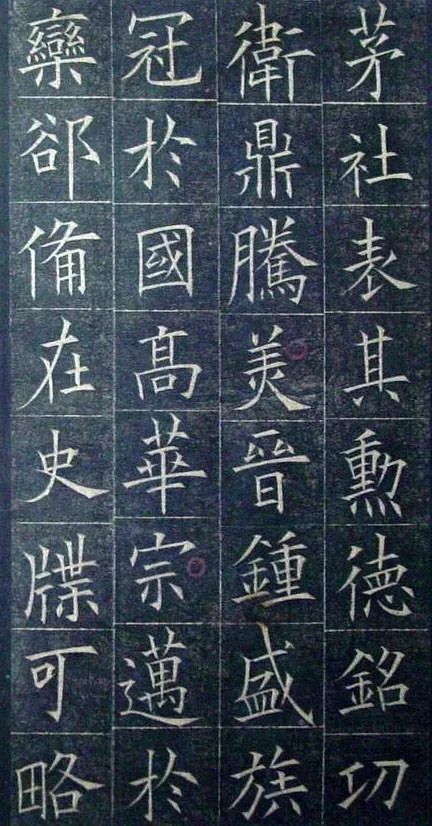 茅社表其勲德銘㓛
衛鼎騰美晉鍾盛族
冠於國髙華宗邁於
欒郤備在史牒可略